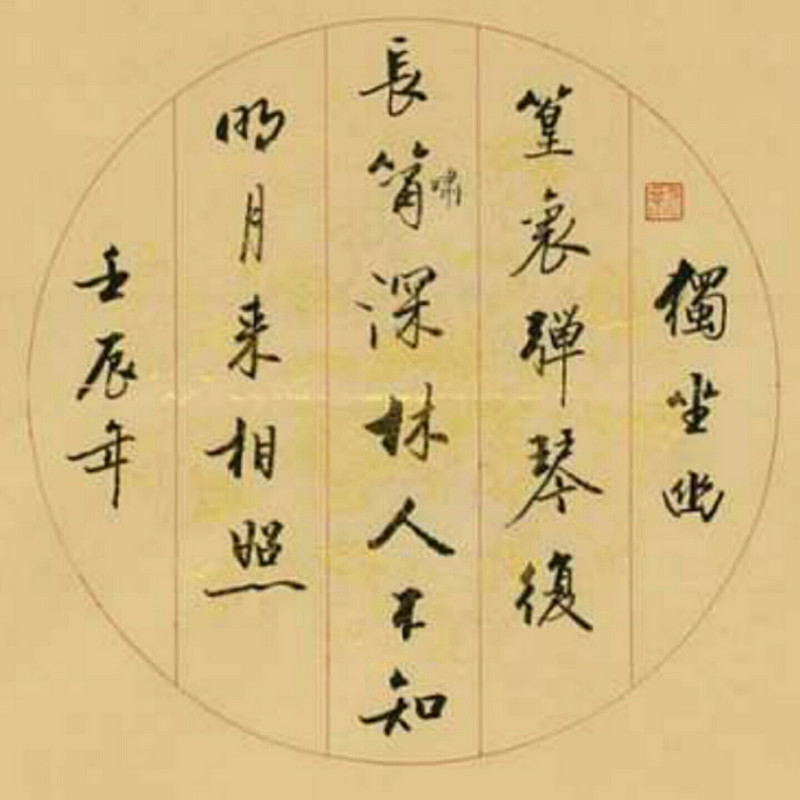 獨坐幽
篁裏彈琴復
長筩嘯深林人不知
明月来相照
壬辰年